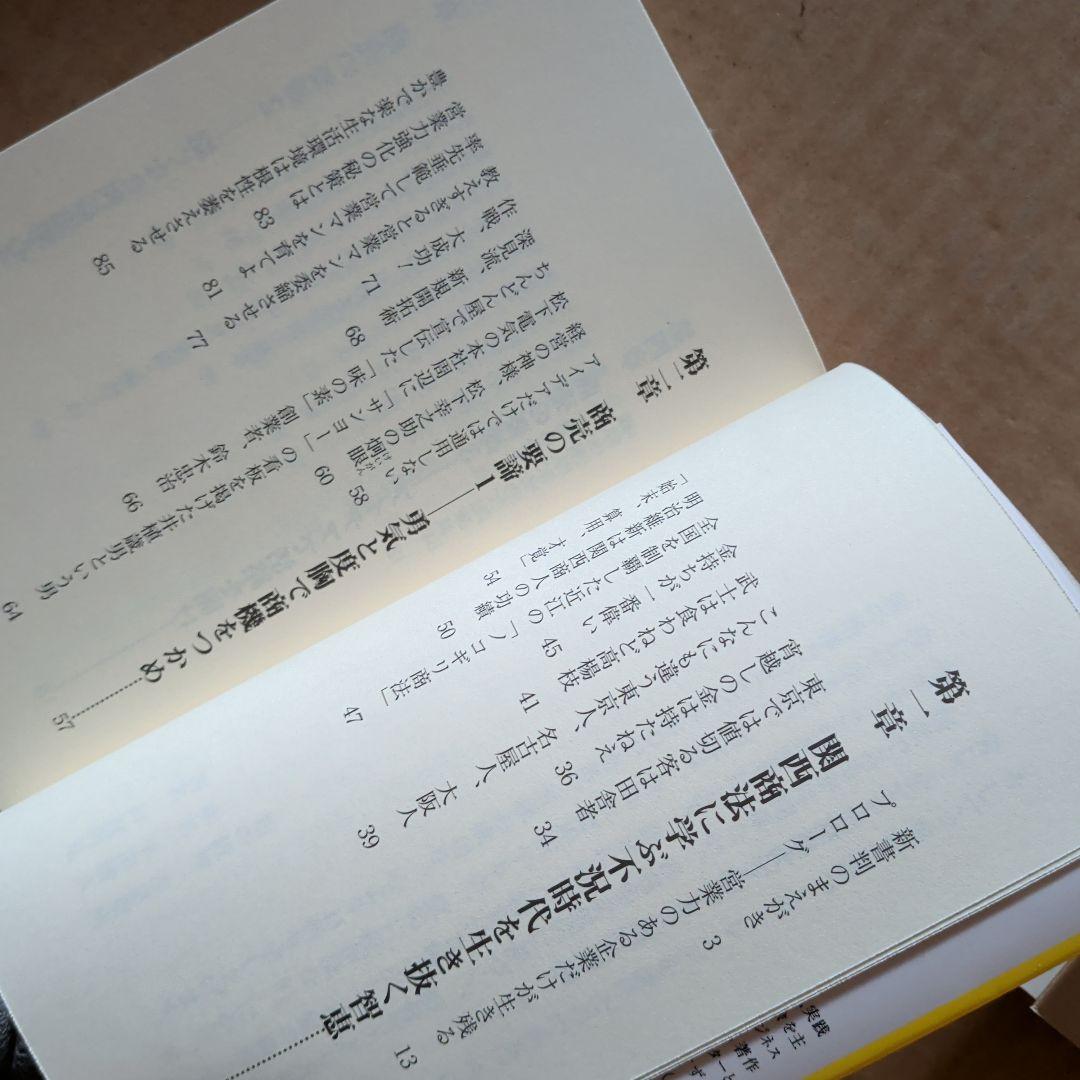 新書判のまえがき 3
プロローグ――営業力のある企業だけが生き残る 13
第一章 関西商法に学ぶ不況時代を生き抜く智恵…………
東京では値切る客は田舎者 34
宵越しの金は持たねえ 36
こんなにも違う東京人、名古屋人、大阪人 39
武士は食わねど高楊枝 41
金持ちが一番偉い 45
全国を制覇した近江の「ノコギリ商法」 47
明治維新は関西商人の功績 50
「始末、算用、才覚」 54
第二章 商売の要諦1――勇気と度胸で商機をつかめ…………57
アイデアだけでは通用しない 58
経営の神様、松下幸之助の炯眼 60
けいがん
松下電気の本社周辺に「サンヨー」の看板を掲げた井植歳男という男 64
ちんどん屋で宣伝した「味の素」創業者、鈴木忠治 66
深見流、新規開拓術 68
作戦、大成功! 71
教えすぎると営業マンを委縮させる 77
率先垂範して営業マンを育てよ 81
営業力強化の秘策とは 83
豊かで楽な生活環境は根性を萎えさせる 85
実践
を主
ジネス
著作
ターと